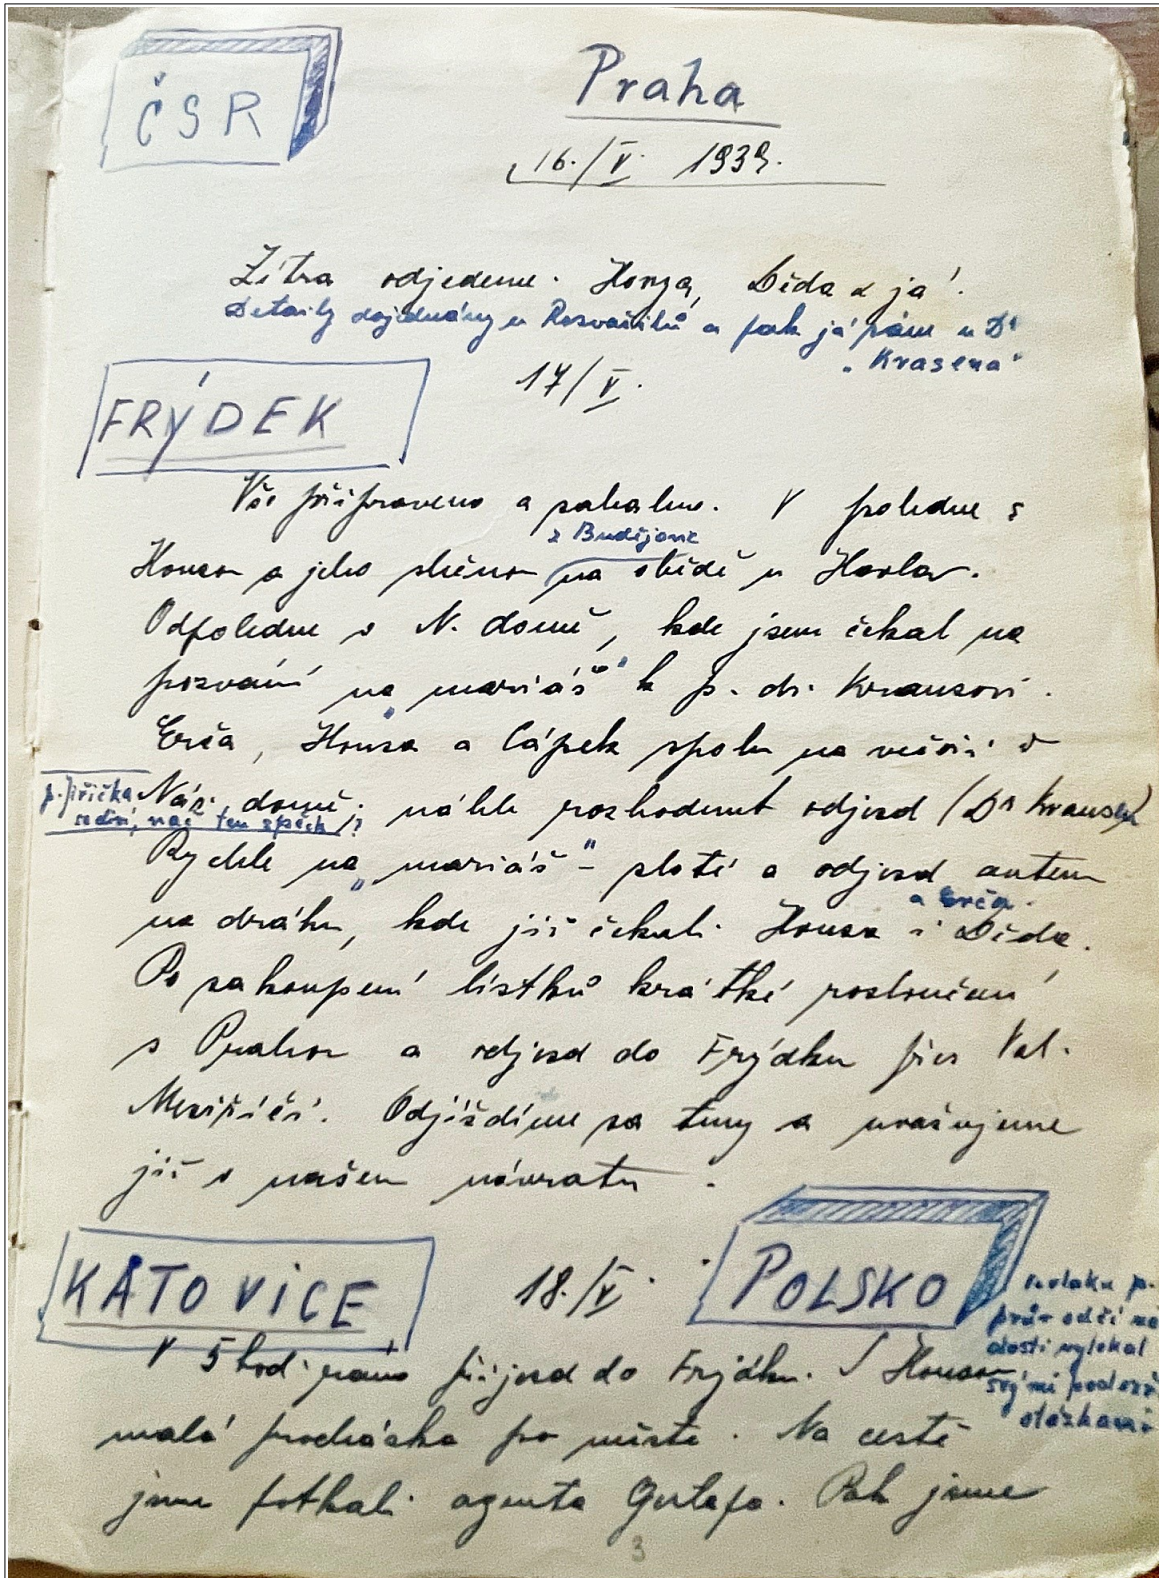 ČSR
Praha
16./V. 1939.
Zítra odjedeme. Honza, Děda a já.
Detaily dojednány u Rozvařilů a pak já sám u Dr
"Krasena"
FRÝDEK
17/V.
Vše připraveno a zabaleno. V poledne s
z Budějovic
Honzou a jeho slečnou na obědě u
Odpoledne v N. domě, kde jsem čekal na
pozvání na "mariáš" k p. dr. Krausovi.
Erča, Honza a Čápek spolu na večeři v
p. Jiřička
Nár. domě; náhle rozhodnut odjezd (Dr Kraus)
nač ten spěch?
Rychle na "mariáš" - placté a odjezd autem
a Erča.
na dráhu, kde již čekali Honza i Děda.
Po zakoupení lístků krátké rozloučení
s Prahou a odjezd do Frýdku přes Val.
Meziříčí. Odjíždíme za tmy a uvažujeme
již o našem návratu.
KATOVICE
18./V.
POLSKO
ve vlaku p.
průvodčí nás
dosti vylekal
svými podezř.
otázkami
V 5 hod. ráno příjezd do Frýdku. S Honzou
malá procházka po městě. Na cestě
jsme potkali agenta Gestapa. Pak jsme
3